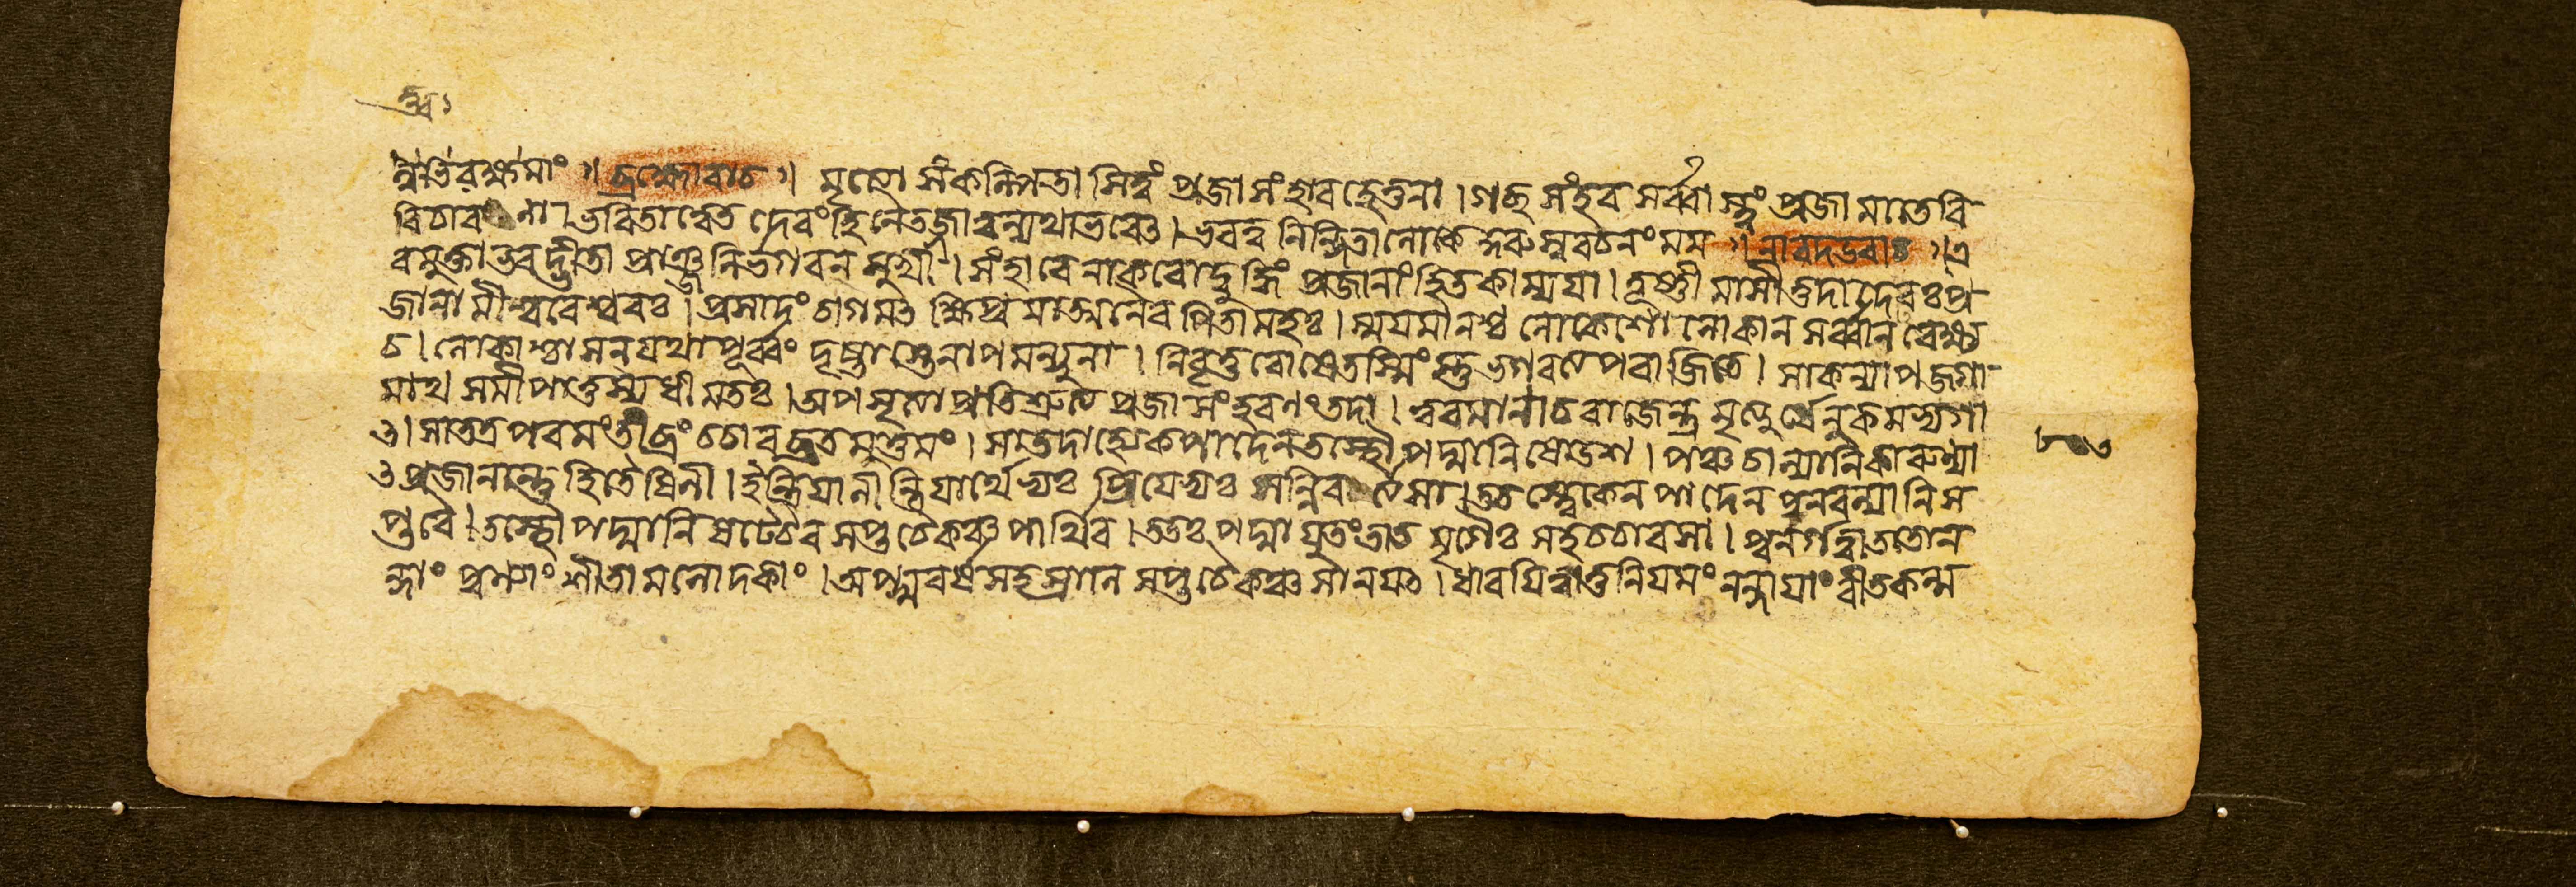 ন্বভিরক্ষমাং ॥ ব্রহ্মোবাচ ॥ মৃত্যো সংকল্পিতা সিত্বং প্রজা সংহারহেতুনা । গচ্ছ সংহর সর্ব্বাস্ত্বং প্রজা মাতে বি
বিচারণা । ভবিতাত্বেত দেবংহি নৈতজ্জাত্বন্যথাভবেৎ । ভবত্ব নিন্দিতা লোকে কুরুস্ববচনং মম ॥ নারদউবাচ ॥ এ
বমুক্তাভবদ্ভীতা প্রাঞ্জলির্ভগবনমুখী । সংহারেনাকরোদ্বুদ্ধিং প্রজানাং হিতকাম্যযা । তূষ্ণীমাসীত্তদাদেবঃপ্র
জানামীশ্বরেশ্বরঃ । প্রসাদং চাগমৎ ক্ষিপ্রমাত্মনৈব পিতামহঃ । স্মযমানশ্চ লোকেশো লোকান সর্ব্বানবেক্ষ্য
চ । লোকাশ্চাসনযথাপূর্ব্বং দৃষ্টাস্তেনাপমন্যুনা । নিবৃত্তরোষেতস্মিংস্তু ভগবত্যপরাজিতে । সাকন্যাপজগা
মাথ সমীপাত্তস্যধীমতঃ । অপসৃত্যাপ্রতিশ্রুত্য প্রজাসংহরণং তদা । ত্বরমানাচরাজেন্দ্র মৃত্যুর্ধেনুকমভ্যগা
ৎ । সাতত্রপরমংতীব্রং চচারব্রতমুত্তমং । সাতদাহ্যেকপাদেনতস্থৌ পদ্মানিষোডশ । পঞ্চচান্যানিকারুণ্যা
ৎপ্রজানান্তু হিতৈষিনী । ইন্দ্রিযানীন্দ্রিযার্থেভ্যঃ প্রিযেভ্যঃ সন্নিবর্ত্যসা । ততস্ত্বেকেন পাদেন পুনরন্যানি স
প্তবৈ । তস্থৌপদ্মানিষট্চৈব সপ্তচৈকঞ্চপার্থিব । ততঃ পদ্মাযুতংতাত মৃগৈঃ সহচচারসা । পুনর্গত্বাততোন
ন্দাং পুণ্যাং শীতামলোদকাং । অপ্সুবর্ষসহস্রানি সপ্তচৈকঞ্চসানযৎ । ধারযিত্বাতুনিযমং নন্দাযাং বীতকল্ম